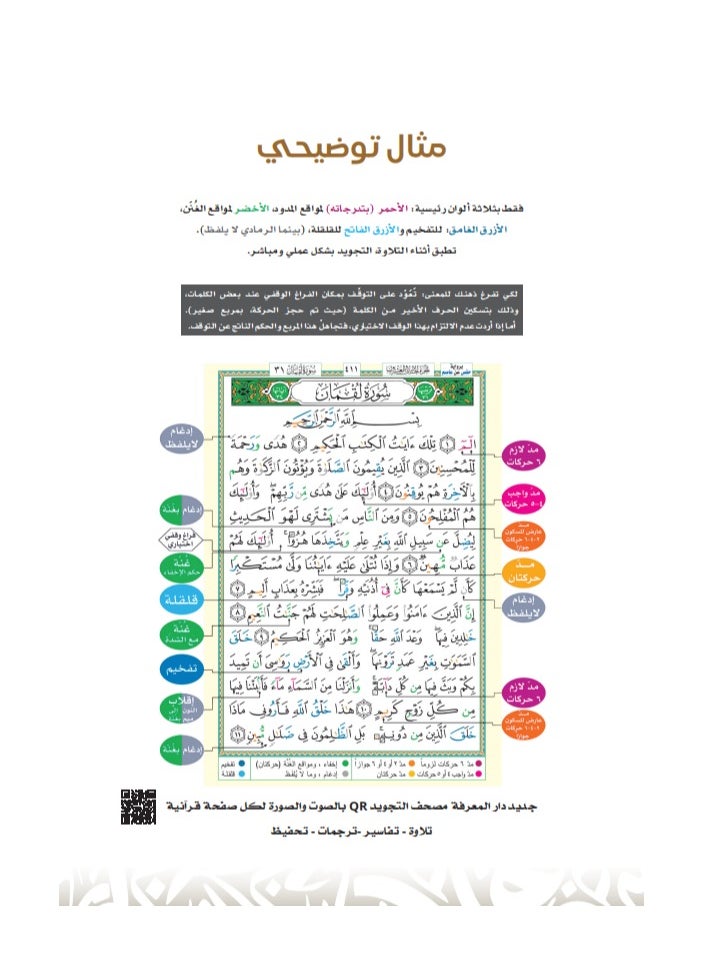 مثال توضيحي
فقط بثلاثة ألوان رئيسية: الأحمر (بتدرجاته) لمواقع المدود، الأخضر لمواقع الغُنَن،
الأزرق الغامق: للتفخيم والأزرق الفاتح للقلقلة، (بينما الرمادي لا يلفظ).
تطبق أثناء التلاوة، التجويد بشكل عملي ومباشر.
لكي تفرغ ذهنك للمعنى: تَعَوَّد على التوقّف بمكان الفراغ الوقفي عند بعض الكلمات،
وذلك بتسكين الحرف الأخير من الكلمة (حيث تم حجز الحركة، بمربع صغير).
أما إذا أردت عدم الالتزام بهذا الوقف الاختياري، فتجاهلْ هذا المربع والحكم الناتج عن التوقف.
برواية
حفص عن عاصم
٤١١
سورة لقمان ٣١
سُورَةُ لُقْمَان
بِسْمِ اللَّهِ الرَّحْمَٰنِ الرَّحِيمِ
الٓمٓ ١ تِلْكَ ءَايَٰتُ الْكِتَٰبِ الْحَكِيمِ ٢ هُدًى وَرَحْمَةً
لِّلْمُحْسِنِينَ ٣ الَّذِينَ يُقِيمُونَ الصَّلَوٰةَ وَيُؤْتُونَ الزَّكَوٰةَ وَهُم
بِالْءَاخِرَةِ هُمْ يُوقِنُونَ ٤ أُو۟لَٰٓئِكَ عَلَىٰ هُدًى مِّن رَّبِّهِمْ وَأُو۟لَٰٓئِكَ
هُمُ الْمُفْلِحُونَ ٥ وَمِنَ النَّاسِ مَن يَشْتَرِى لَهْوَ الْحَدِيثِ
لِيُضِلَّ عَن سَبِيلِ اللَّهِ بِغَيْرِ عِلْمٍ وَيَتَّخِذَهَا هُزُوًا أُو۟لَٰٓئِكَ لَهُمْ
عَذَابٌ مُّهِينٌ ٦ وَإِذَا تُتْلَىٰ عَلَيْهِ ءَايَٰتُنَا وَلَّىٰ مُسْتَكْبِرًا
كَأَن لَّمْ يَسْمَعْهَا كَأَنَّ فِىٓ أُذُنَيْهِ وَقْرًا فَبَشِّرْهُ بِعَذَابٍ أَلِيمٍ ٧
إِنَّ الَّذِينَ ءَامَنُوا۟ وَعَمِلُوا۟ الصَّٰلِحَٰتِ لَهُمْ جَنَّٰتُ النَّعِيمِ ٨
خَٰلِدِينَ فِيهَا وَعْدَ اللَّهِ حَقًّا وَهُوَ الْعَزِيزُ الْحَكِيمُ ٩ خَلَقَ
السَّمَٰوَٰتِ بِغَيْرِ عَمَدٍ تَرَوْنَهَا وَأَلْقَىٰ فِى الْأَرْضِ رَوَٰسِىَ أَن تَمِيدَ
بِكُمْ وَبَثَّ فِيهَا مِن كُلِّ دَآبَّةٍ وَأَنزَلْنَا مِنَ السَّمَآءِ مَآءً فَأَنۢبَتْنَا فِيهَا
مِن كُلِّ زَوْجٍ كَرِيمٍ ١٠ هَٰذَا خَلْقُ اللَّهِ فَأَرُونِى مَاذَا
خَلَقَ الَّذِينَ مِن دُونِهِ بَلِ الظَّٰلِمُونَ فِى ضَلَٰلٍ مُّبِينٍ ١١
مدّ لازم
٦ حركات
مد واجب
٤-٥ حركات
مــد
عارض للسكون
٢-٤-٦ حركات
جوازاً
مــد
حركتان
إدغام
لا يلفظ
مدّ لازم
٦ حركات
مــد
عارض للسكون
٢-٤-٦ حركات
جوازاً
إدغام
لا يلفظ
إدغام بغنة
فراغ وقفي
اختياري
غُنّة
حكم الإخفاء
قلقلة
غنّة
مع الشدة
تفخيم
إقلاب
النون إلى
ميم بغنة
إدغام بغنة
مدّ ٦ حركات لزوماً مدّ ٢ أو ٤ أو ٦ جوازاً إخفاء، ومواقع الغنّة (حركتان) تفخيم
مدّ واجب ٤ أو ٥ حركات مدّ حركتان إدغام، وما لا يُلفظ قلقلة
جديد دار المعرفة مصحف التجويد QR بالصوت والصورة لكل صفحة قرآنية
تلاوة - تفاسير -ترجمات - تحفيظ